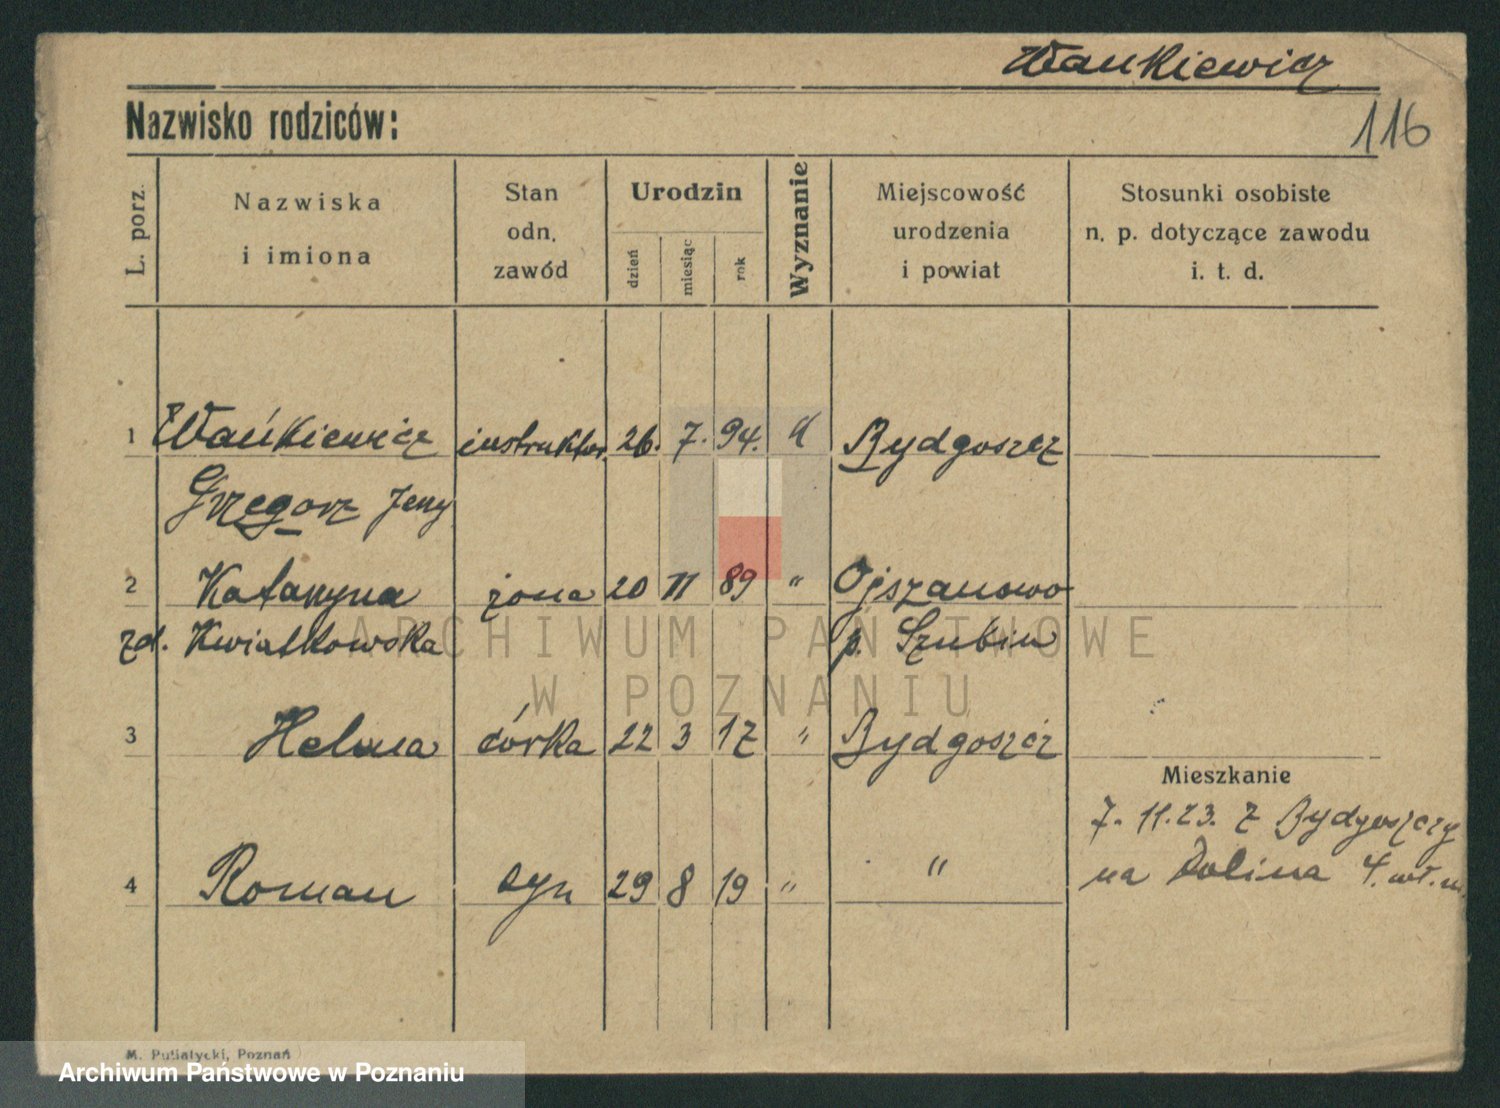 Wańkiewicz
Nazwisko rodziców:
116
L. porz.
Nazwiska
i imiona
Stan
odn,
zawód
Urodzin
dzień
miesiąc
rok
Wyznanie
Miejscowość
urodzenia
i powiat
Stosunki osobiste
n. p. dotyczące zawodu
i. t. d.
1 Wańkiewicz instruktor 26. 7. 94. Bydgoszcz
Grzegorz Jerzy
2 Katarzyna żona 20 11 89 " Ojszanowo
zd. Kwiatkowska p. Szubin
3 Helena córka 22 3 17 " Bydgoszcz
Mieszkanie
7. 11. 23. z Bydgoszczy
4 Roman syn 29 8 19 " "
na Dolina 4. wł. m.
ARCHIWUM PAŃSTWOWE
W POZNANIU
M. Putiatycki, Poznań
Archiwum Państwowe w Poznaniu